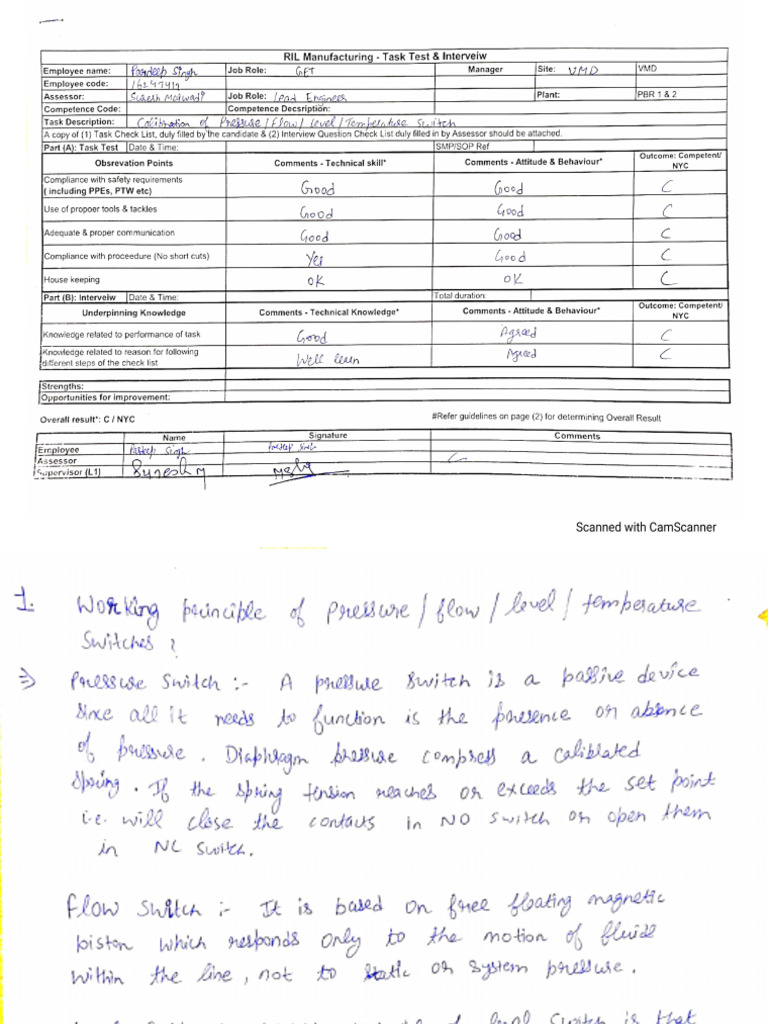 RIL Manufacturing - Task Test & Interveiw
Employee name: Pardeep Singh Job Role: GET Manager Site: VMD VMD
Employee code:
Assessor: Suresh Job Role: Lead Engineer Plant: PBR 1 & 2
Competence Code: Competence Decsription:
Task Description: Calibration of Pressure/Flow/Level/Temperature Switch
A copy of (1) Task Check List, duly filled by the candidate & (2) Interview Question Check List duly filled in by Assessor should be attached.
Part (A): Task Test Date & Time: SMP/SOP Ref
Obsrevation Points Comments - Technical skill* Comments - Attitude & Behaviour* Outcome: Competent/ NYC
Compliance with safety requirements
( including PPEs, PTW etc) Good Good C
Use of propoer tools & tackles Good Good C
Adequate & proper communication Good Good C
Compliance with proceedure (No short cuts) Yes Good C
House keeping OK OK C
Part (B): Interveiw Date & Time: Total duration:
Underpinning Knowledge Comments - Technical Knowledge* Comments - Attitude & Behaviour* Outcome: Competent/ NYC
Knowledge related to performance of task Good Agreed C
Knowledge related to reason for following
different steps of the check list Well Agreed C
Strengths:
Opportunities for improvement:
Overall result*: C / NYC #Refer guidelines on page (2) for determining Overall Result
Name Signature Comments
Employee Pardeep Singh Pardeep Singh
Assessor
Supervisor (L1) Suresh M
Scanned with CamScanner
1. Working principle of pressure/flow/level/temperature
Switches?
⇒ Pressure Switch :- A pressure switch is a passive device
since all it needs to function is the presence or absence
of pressure. Diaphragm pressure compress a caliblated
spring. If the spring tension reaches or exceeds the set point
i.e. will close the contacts in NO switch or open them
in NC switch.
Flow Switch :- It is based on free floating magnetic
piston which responds only to the motion of fluid
within the line, not to static or system pressure.
of level switch is that